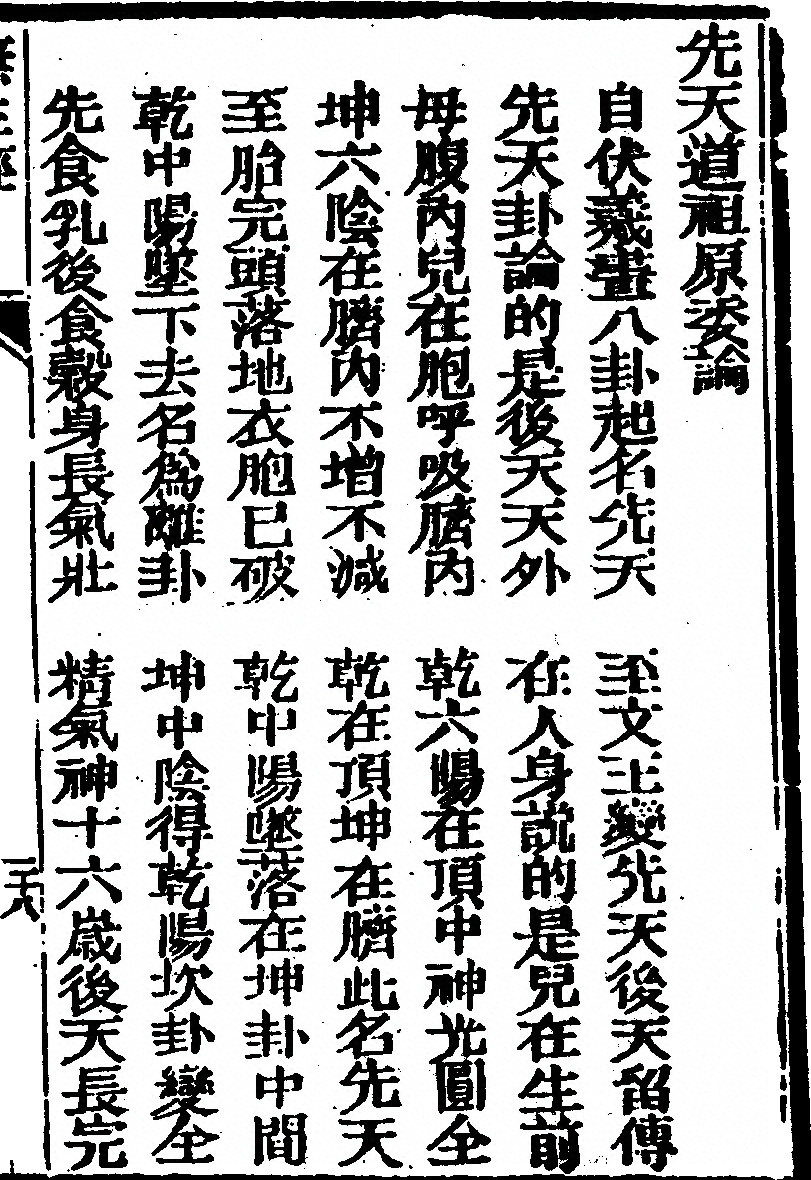 先天道祖原委論
自伏羲畫八卦起名先天　至文王變先天後天留傳
先天卦論的是後天天外　在人身說的是兒在生前
母腹內兒在胞呼吸臍內　乾六陽在頂中神光圓全
坤六陰在臍內不增不減　乾在頂坤在臍此名先天
至胎完頭落地衣胞已破　乾中陽墜落在坤卦中間
乾中陽墜下去名爲離卦　坤中陰得乾陽坎卦變全
先食乳後食穀身長氣壯　精氣神十六歲後天長完
二十八